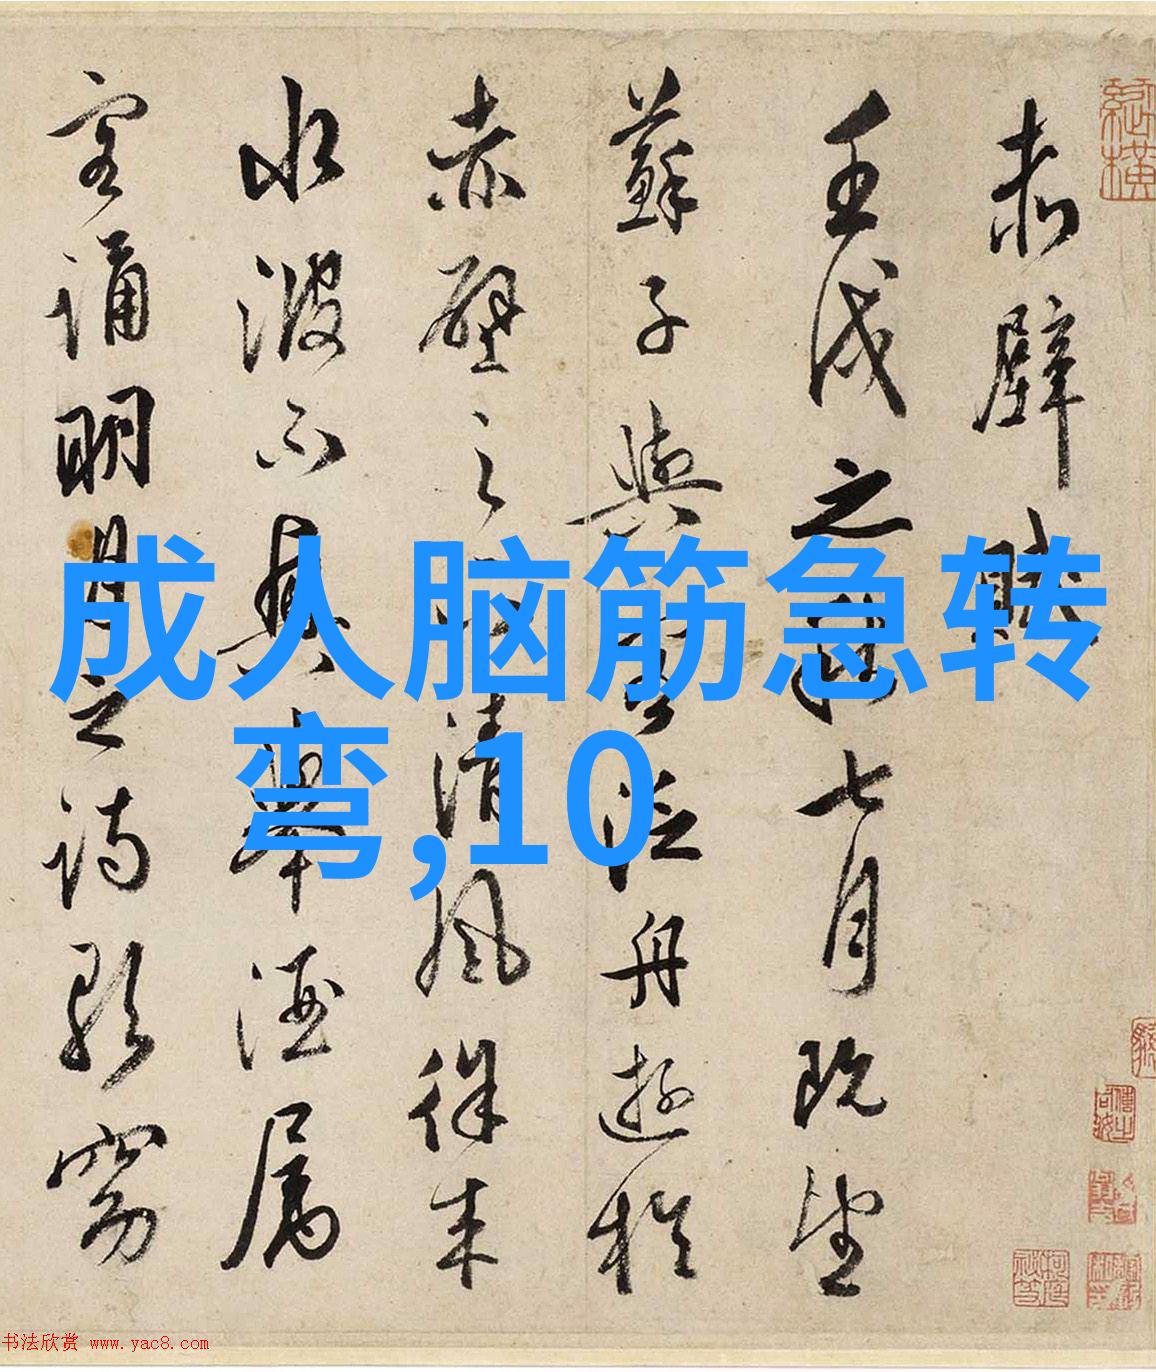 赤壁賦
壬戌之秋七月既望
蘇子與客泛舟遊於
赤壁之下清風徐来
水波不興舉酒属
客誦明月之詩歌窈
成人脑筋急转
弯,10
书法欣赏 www.yac8.com